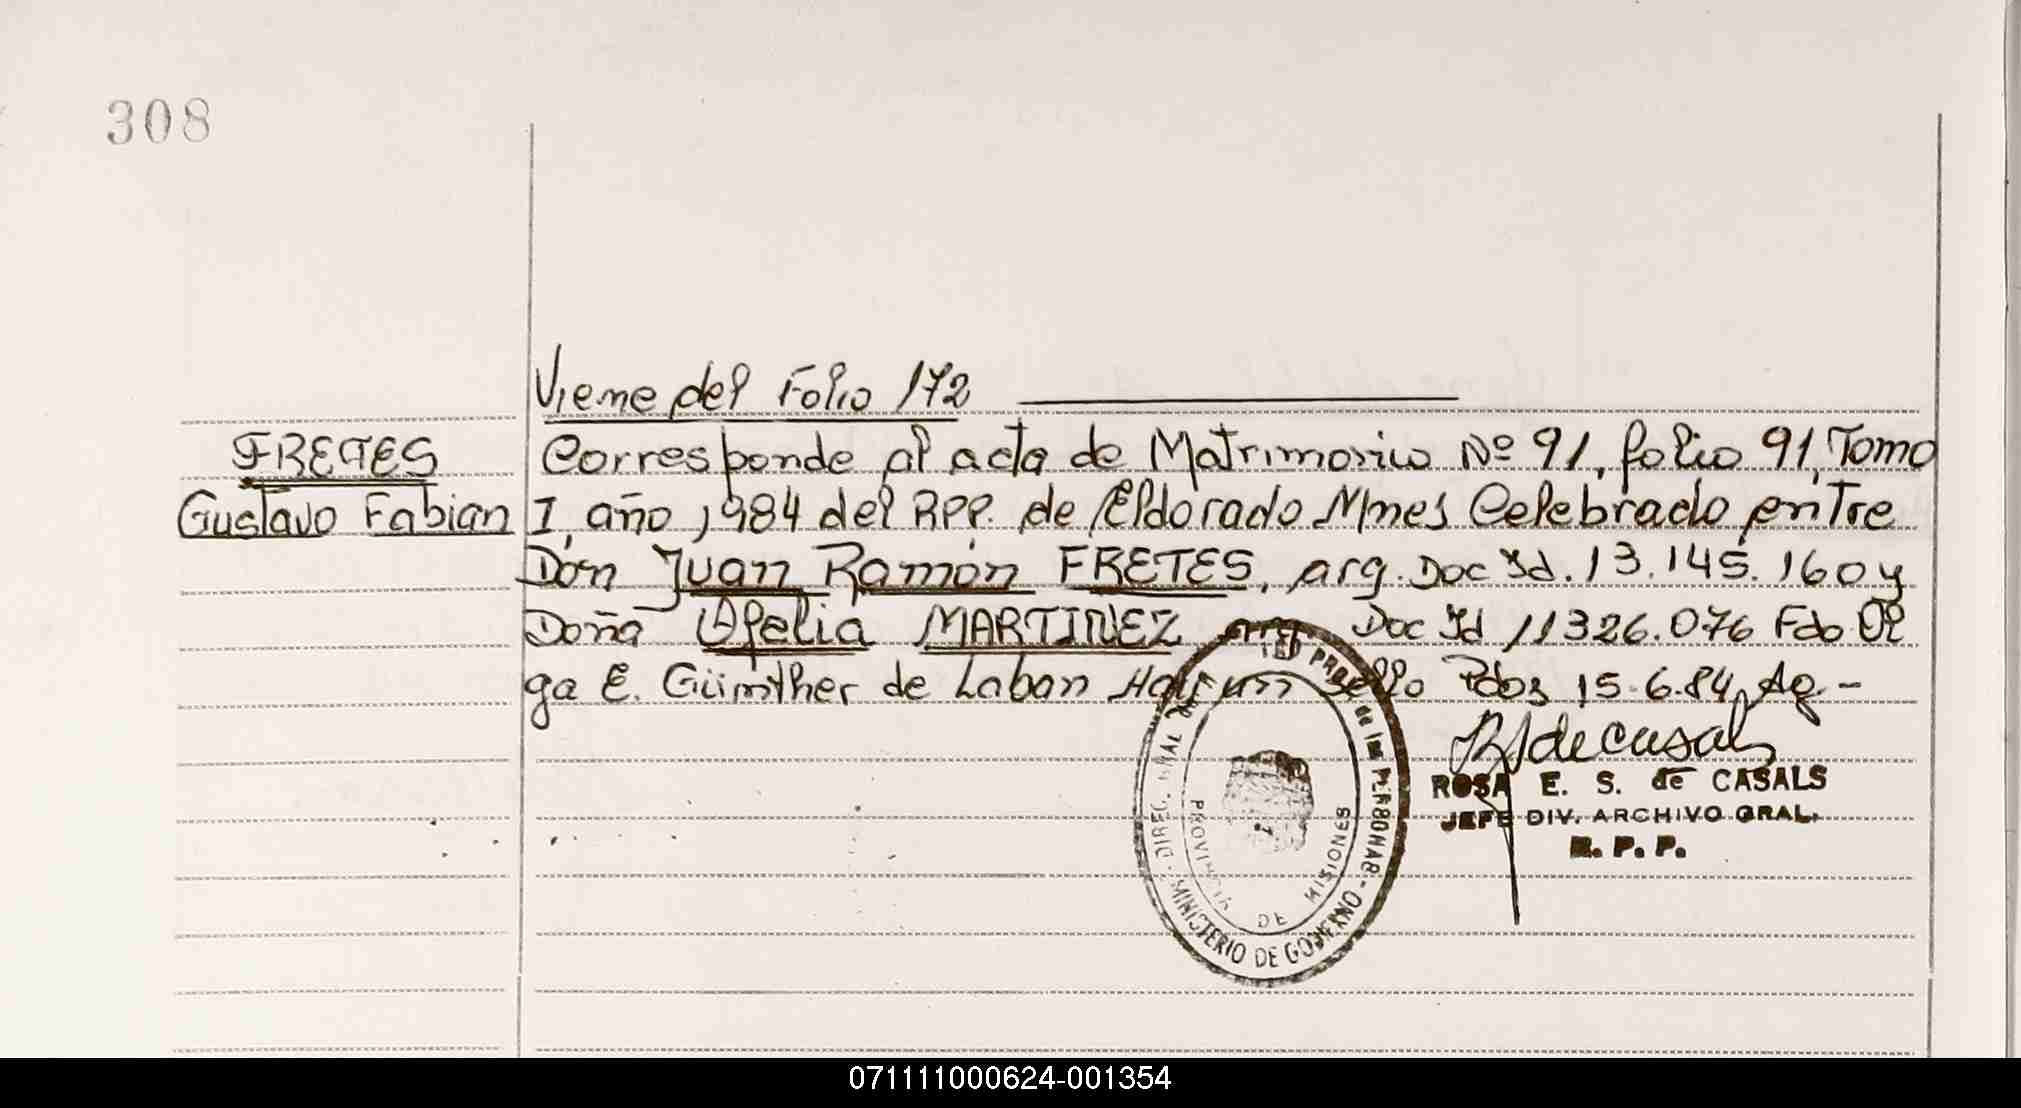 308
Viene del Folio 172
FRETES
Gustavo Fabian
Corresponde al acta de Matrimonio Nº 91, folio 91, Tomo
I, año 1984 del RPP. de Eldorado Mnes Celebrado entre
Don Juan Ramón FRETES, arg. Doc Id. 13.145.160 y
Doña Ofelia MARTINEZ arg. Doc Id 11326.076 Fdo Ol
ga E. Günther de Laban Hay un Sello Pdos 15.6.84
RS de Casals
ROSA E. S. de CASALS
JEFE DIV. ARCHIVO GRAL.
R. P. P.
PROV. de las PERSONAS - MINISTERIO DE GOBIERNO -
PROVINCIA DE MISIONES
071111000624-001354